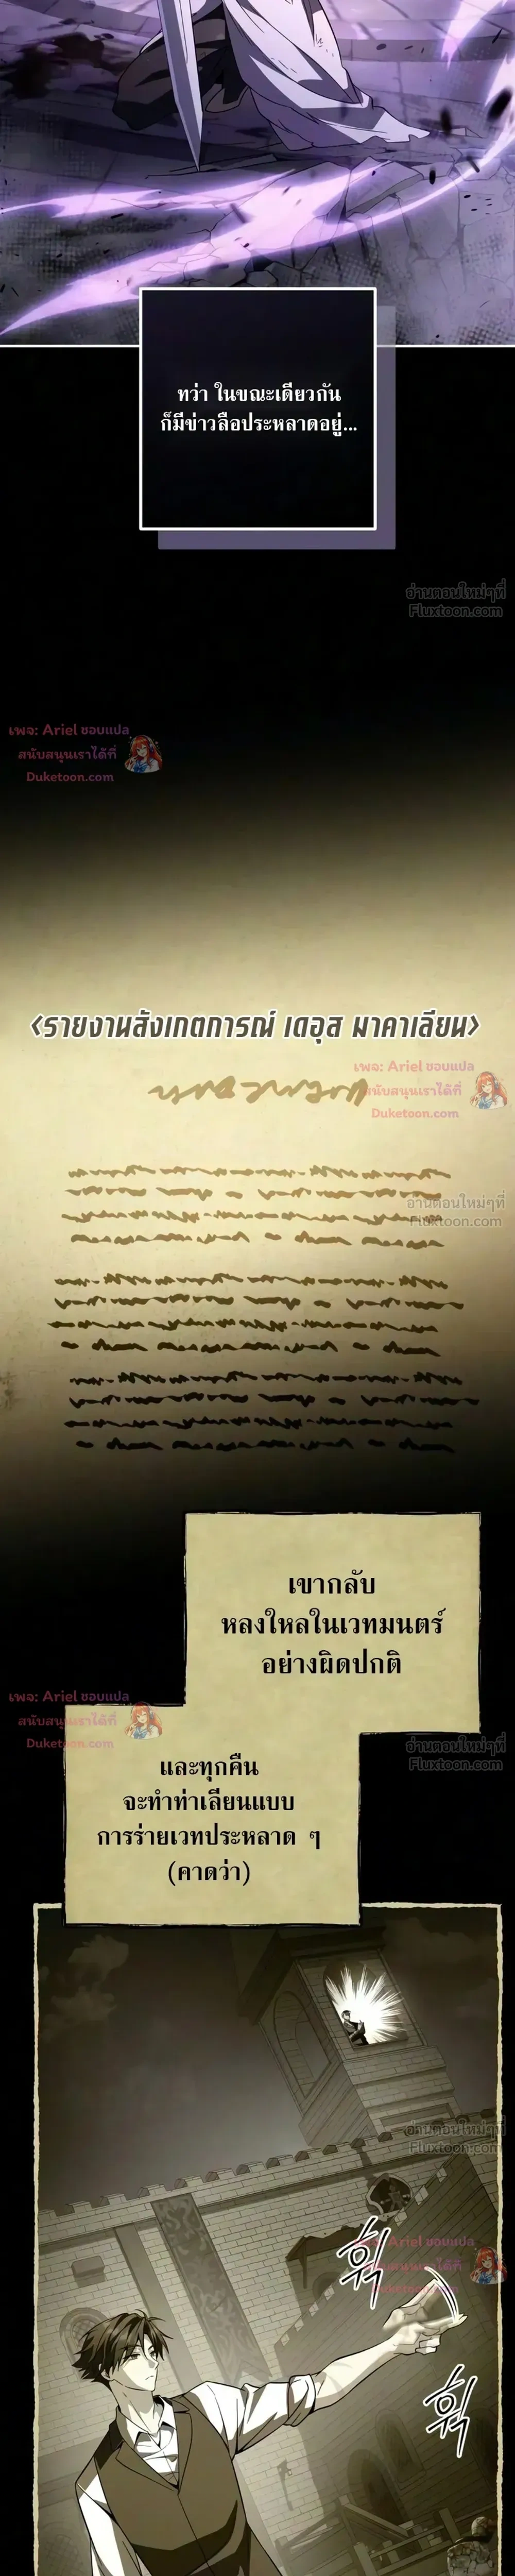 ทว่า ในขณะเดียวกัน
ก็มีข่าวลือประหลาดอยู่...
อ่านตอนใหม่ๆที่
Fluxtoon.com
เพจ: Ariel ชอบแปล
สนับสนุนเราได้ที่
Duketoon.com
<รายงานสังเกตการณ์ เดอุส มาคาเลียน>
เพจ: Ariel ชอบแปล
สนับสนุนเราได้ที่
Duketoon.com
อ่านตอนใหม่ๆที่
Fluxtoon.com
เขากลับ
หลงใหลในเวทมนตร์
อย่างผิดปกติ
เพจ: Ariel ชอบแปล
สนับสนุนเราได้ที่
Duketoon.com
อ่านตอนใหม่ๆที่
Fluxtoon.com
และทุกคืน
จะทำท่าเลียนแบบ
การร่ายเวทประหลาด ๆ
(คาดว่า)
อ่านตอนใหม่ๆที่
Fluxtoon.com
휙
Ariel ชอบแปล
휙